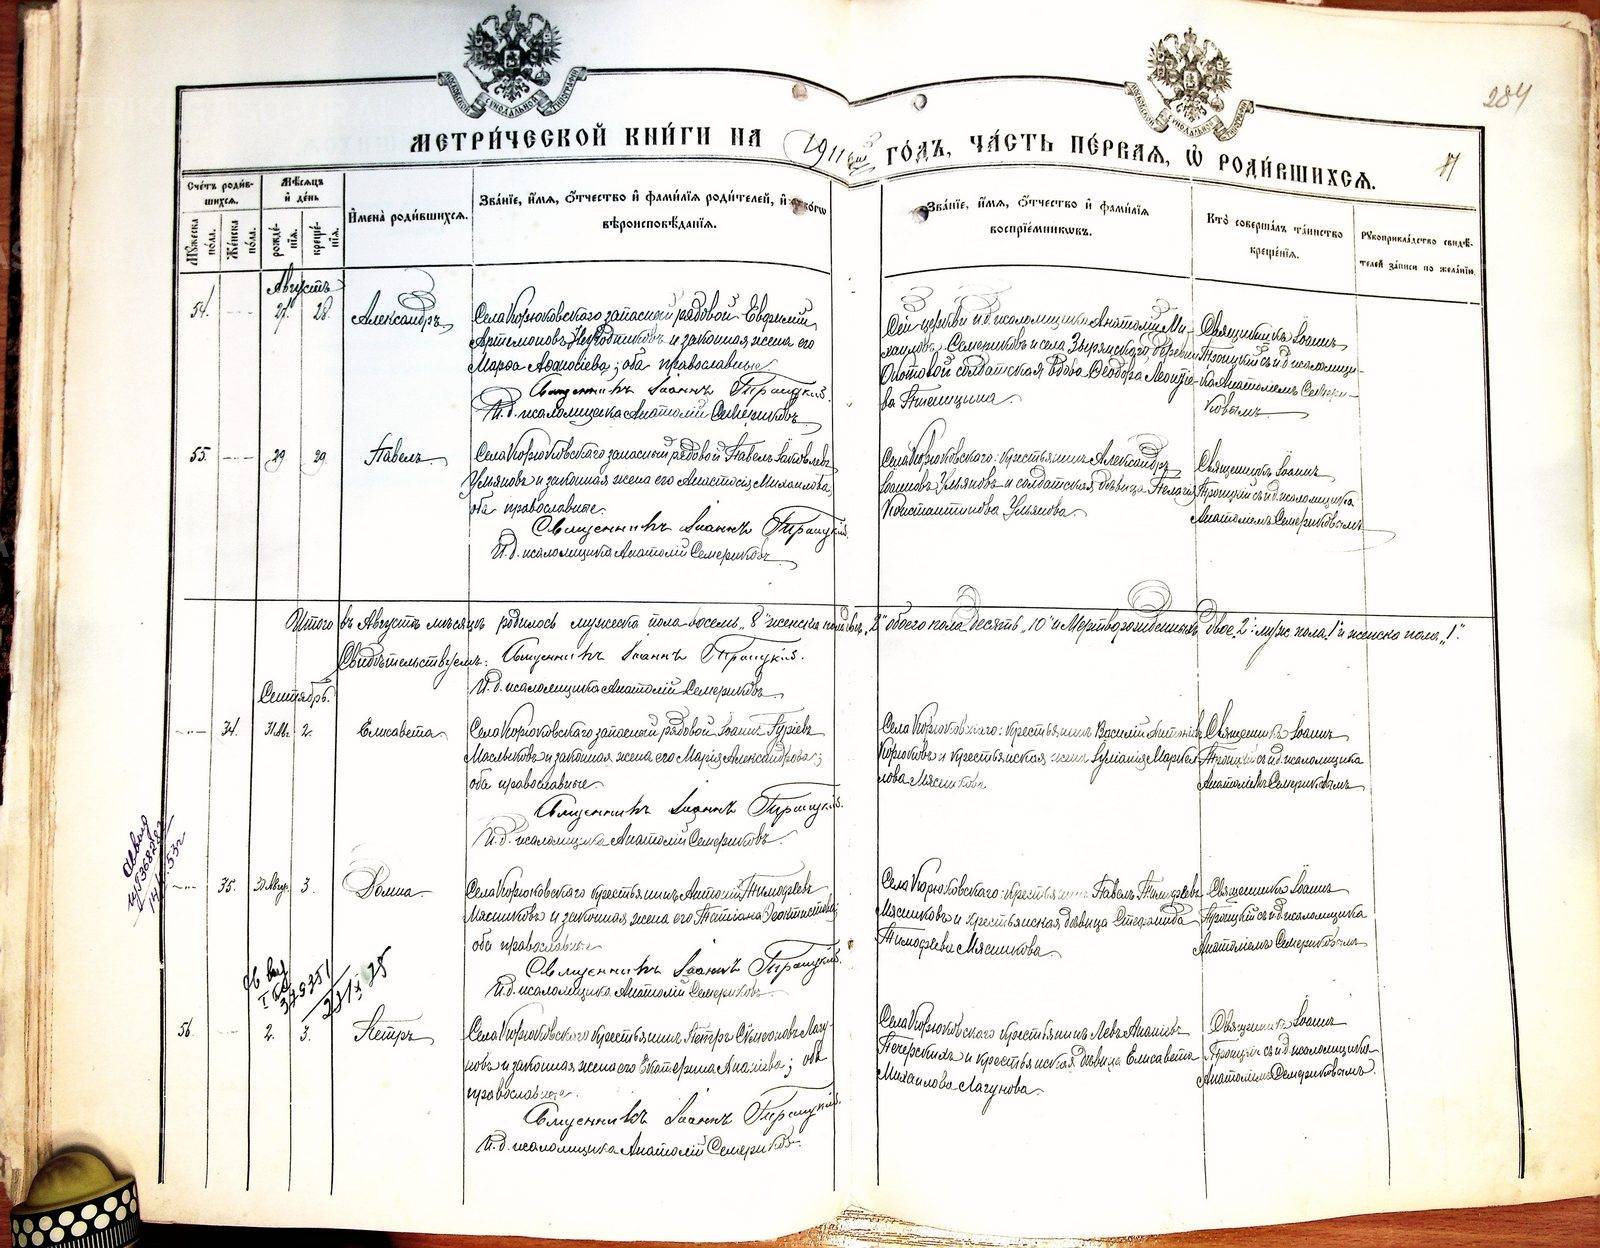 284
МЕТРИ́ЧЕСКОЙ КНИ́ГИ НА 1911 ГО́ДЪ, ЧА́СТЬ ПЕ́РВАЯ, Ѡ҆ РОДИ́ВШИХСЯ.
Сче́тъ роди́вшихся.
Мѣ́сяцъ и҆ де́нь
Му́жеска по́ла.
Же́нска по́ла.
рожде́нїя.
креще́нїя.
И҆мена̀ роди́вшихся.
Зва́нїе, и҆́мя, ѻ҆́тчество и҆ фами́лїя роди́телей, и҆ како́гѡ
вѣроисповѣ́данїя.
Зва́нїе, и҆́мя, ѻ҆́тчество и҆ фами́лїя
воспрїе́мникѡвъ.
Кто̀ соверша́лъ та́инство
креще́нїя.
Рукоприкла́дство свидѣ́-
телей за́писи по жела́нїю.
Августъ
54. 27 28 Александръ
Села Корюковскаго запасный рядовой Евфимій
Артемоновъ и законная жена его
Марѳа Аѳанасіева; оба православные
Священникъ Іоаннъ Троицкій.
И.д. псаломщика Анатолій Семериковъ
Сей церкви и.д. псаломщика Анатолій Ми-
хаиловъ Семериковъ и села Зырянскаго деревни
солдатская вдова Ѳеодора Леонтіе-
ва Пшеницина
Священникъ Іоаннъ
Троицкій съ и.д. псаломщи-
ка Анатоліемъ Семери-
ковымъ
55. 29 29. Павелъ
Села Корюковскаго запасный рядовой Павелъ Іаковлевъ
Ульяновъ и законная жена его Анастасія Михаилова,
оба православные.
Священникъ Іоаннъ Троицкій.
И.д. псаломщика Анатолій Семериковъ
Села Корюковскаго: крестьянинъ Александръ
Іоанновъ Ульяновъ и солдатская дѣвица Пелагія
Константинова Ульянова.
Священникъ Іоаннъ
Троицкій съ и.д. псаломщика
Анатоліемъ Семериковымъ
Итого въ Августѣ мѣсяцѣ родилось мужеска пола восемь „8" женска пола двѣ „2" обоего пола десять „10" и мертворожденныхъ двое „2": муж. пола „1" и женска пола „1".
Свидѣтельствуемъ: Священникъ Іоаннъ Троицкій.
И.д. псаломщика Анатолій Семериковъ
Сентябрь.
34. 31 Ав. 2. Елисавета
Села Корюковскаго запасный рядовой Іоаннъ Гуріевъ
Масльковъ и законная жена его Марія Александрова;
оба православные
Священникъ Іоаннъ Троицкій.
И.д. псаломщика Анатолій Семериковъ.
Села Корюковскаго: крестьянинъ Василій Антоніевъ
Корюковъ и крестьянская жена Іуліанія Маркел-
лова Мясникова
Священникъ Іоаннъ
Троицкій съ и.д. псаломщика
Анатоліемъ Семериковымъ
35. 31 Авгус. 3. Домна.
Села Корюковскаго крестьянинъ Антоній Тимоѳеевъ
Мясниковъ и законная жена его Татіана Ѳеоктистова;
оба православные
Священникъ Іоаннъ Троицкій.
И.д. псаломщика Анатолій Семериковъ.
Села Корюковскаго: крестьянинъ Павелъ Тимоѳеевъ
Мясниковъ и крестьянская дѣвица Стефанида
Тимоѳеева Мясникова
Священникъ Іоаннъ
Троицкій съ и.д. псаломщика
Анатоліемъ Семериковымъ
56. 2. 3. Петръ
Села Корюковскаго крестьянинъ Петръ Симеоновъ Лагу-
новъ и законная жена его Екатерина Ананіева; оба
православные.
Священникъ Іоаннъ Троицкій.
И.д. псаломщика Анатолій Семериковъ.
Села Корюковскаго крестьянинъ Левъ Ананіевъ
Печерскихъ и крестьянская дѣвица Елисавета
Михаилова Лагунова.
Священникъ Іоаннъ
Троицкій съ и.д. псаломщика
Анатоліемъ Семериковымъ.